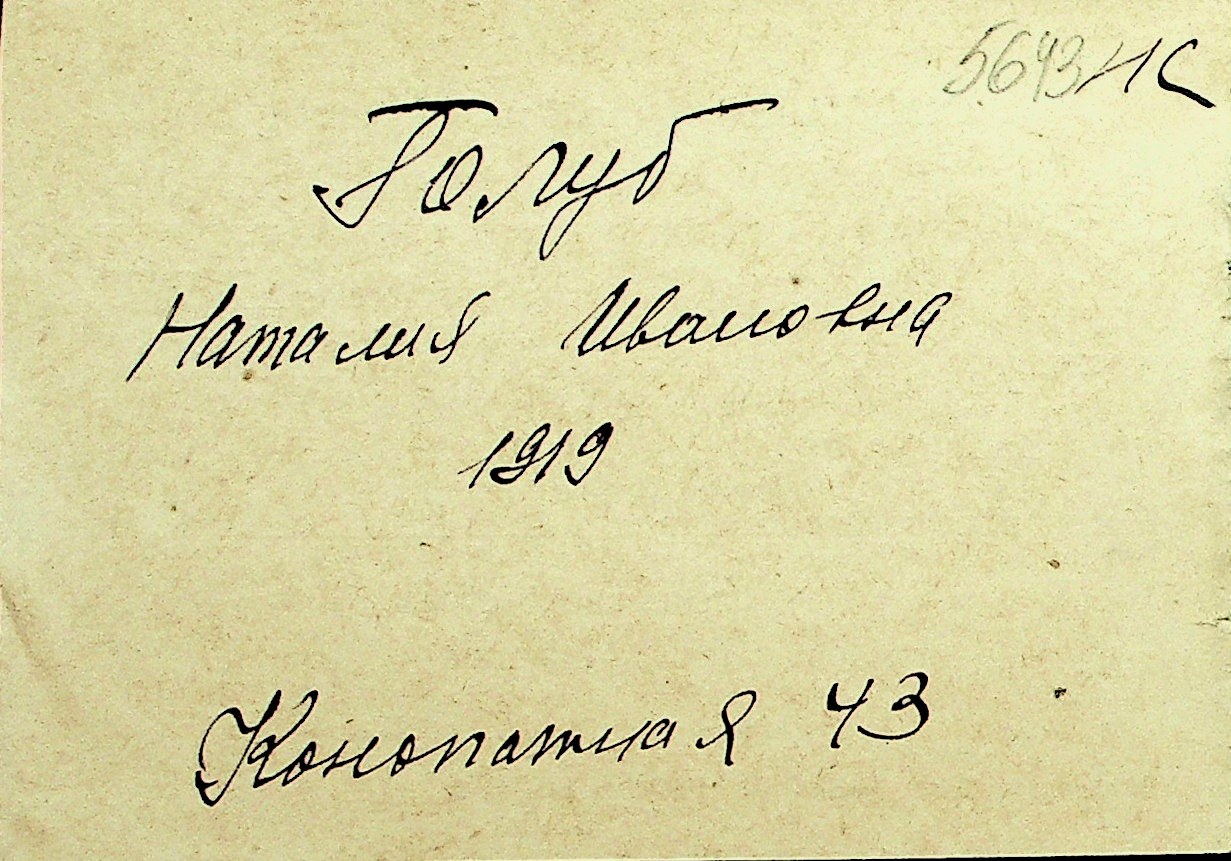 5643 НС
Голуб
Наталия Ивановна
1919
Конопатная 43